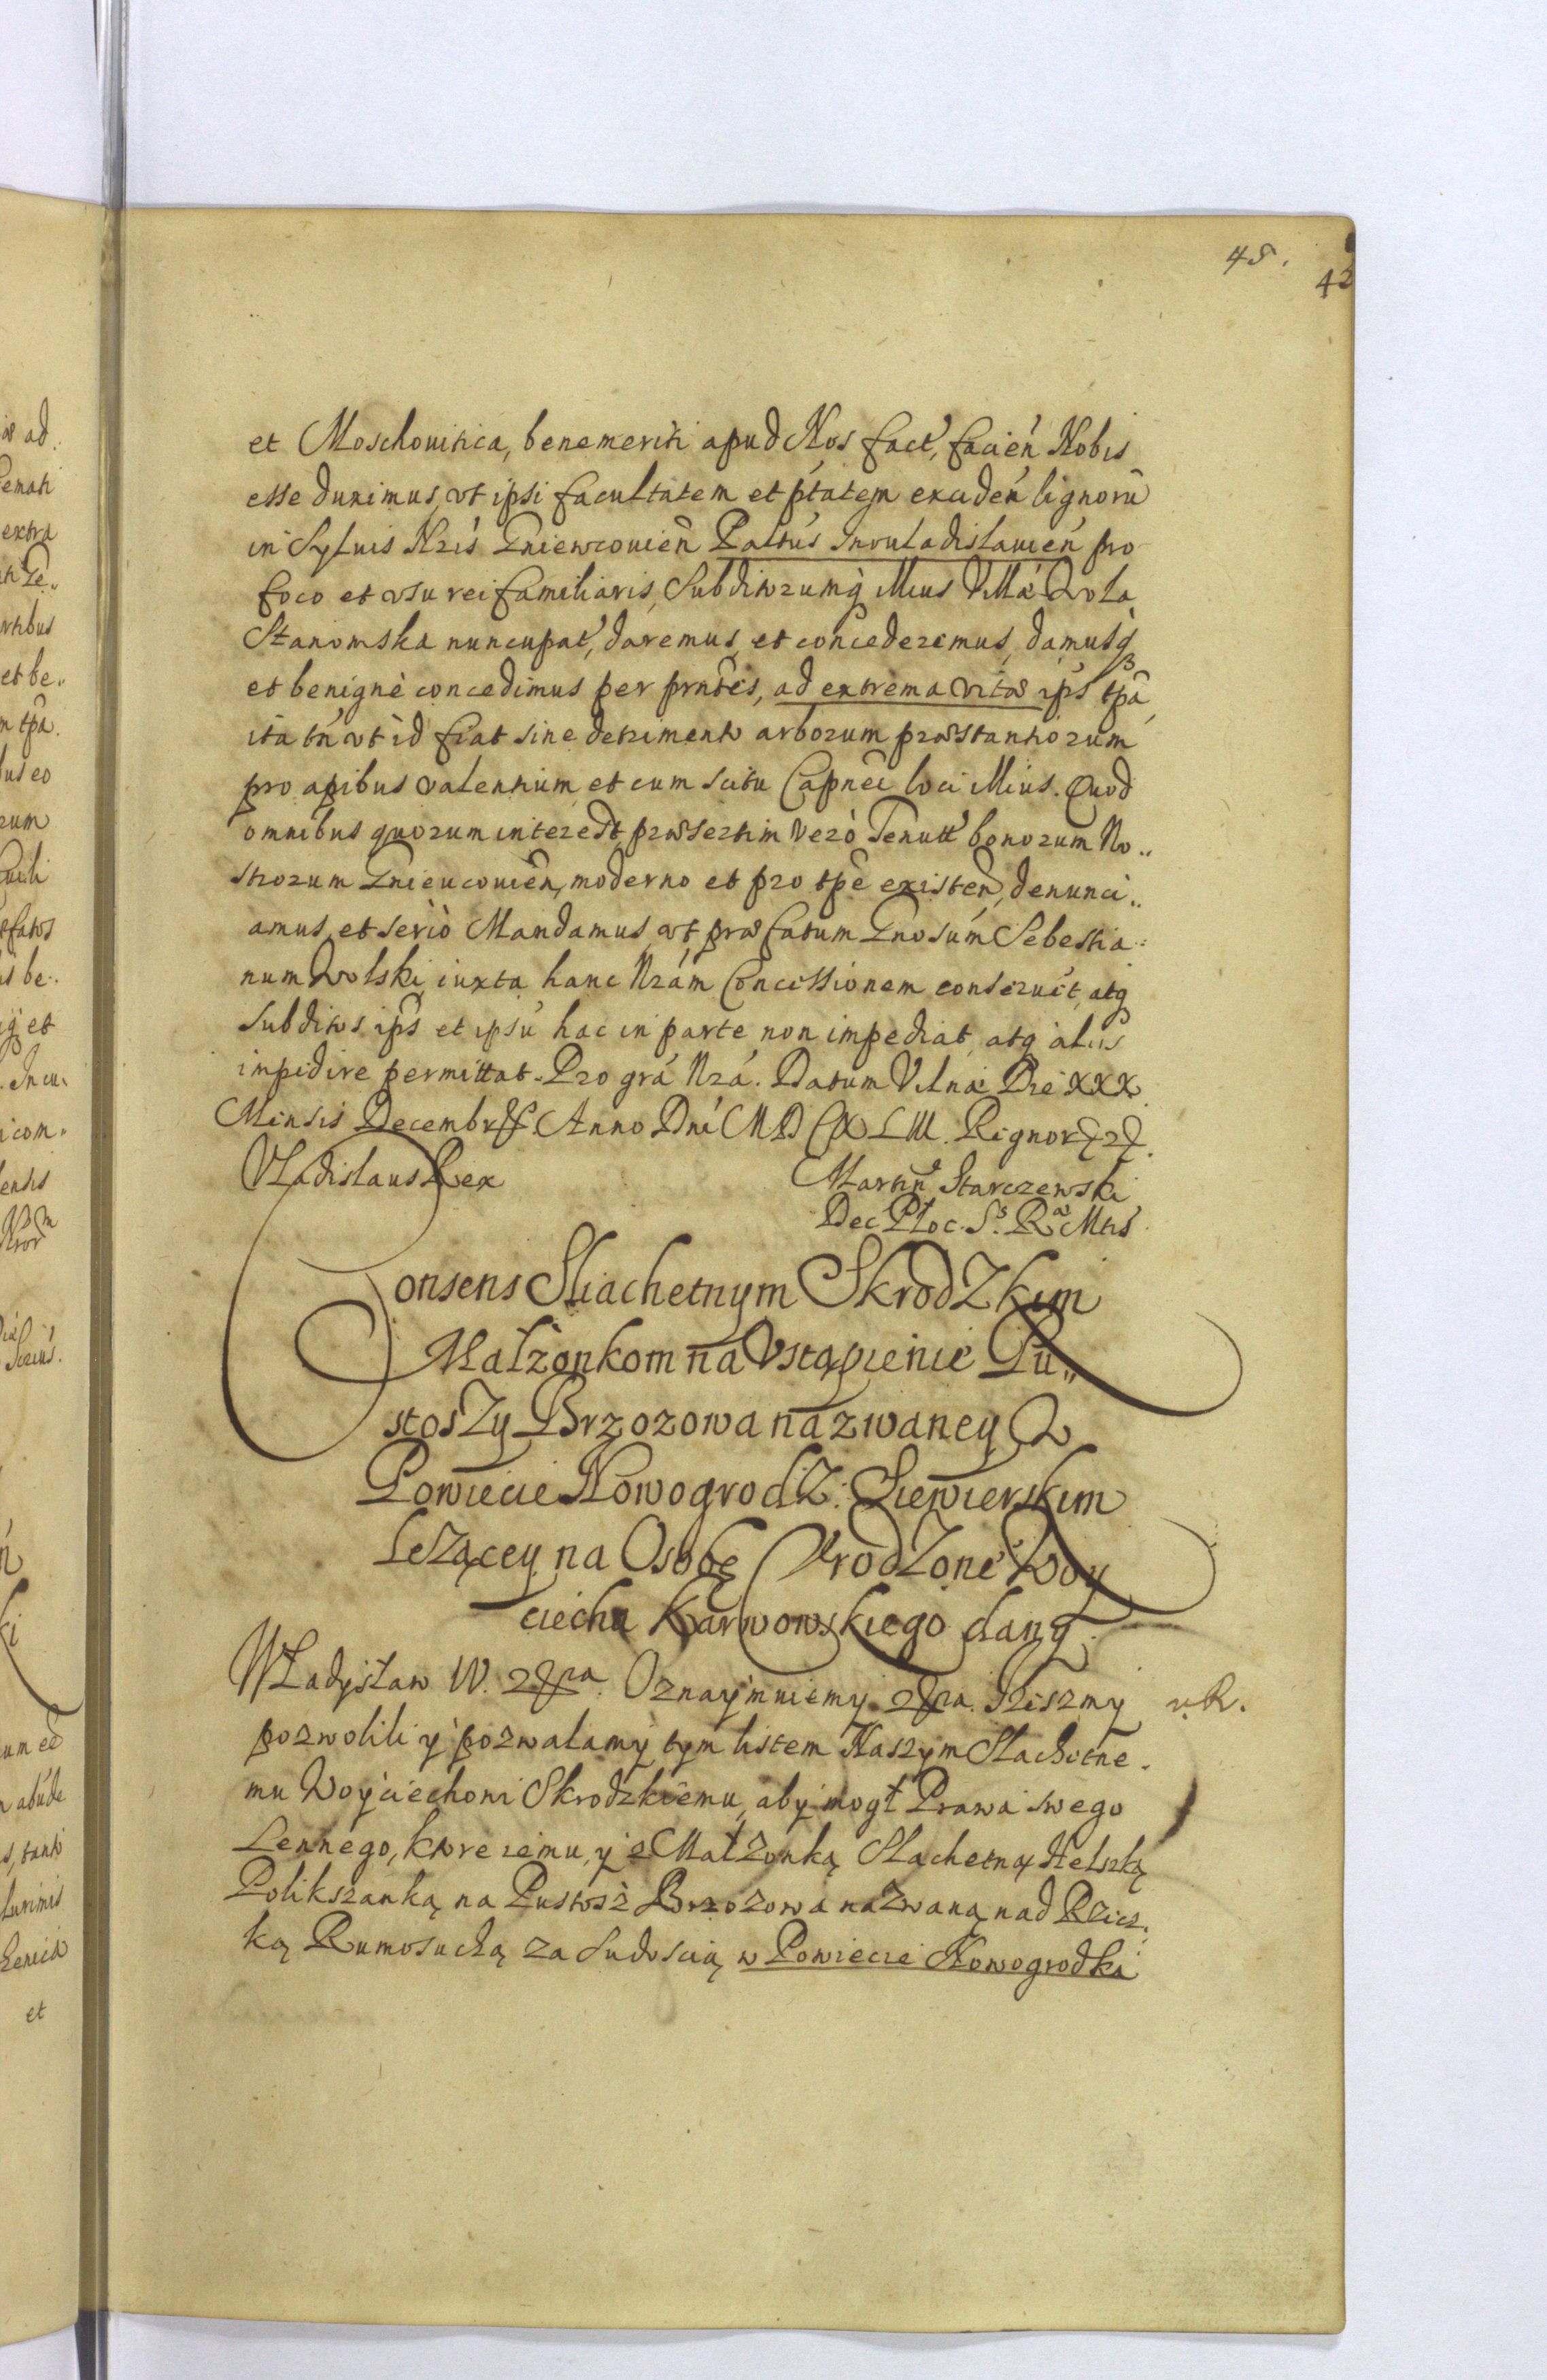 45.
42
et Moschouitica, benemeriti apud Nos fact', facień Nobis
esse duximus, vt ipsi facultatem et ptatem excideń lignorū
in Syluis Nris Gniewcouień Paltus Inuuladislauień pro
foco et vsu rei familiaris, Subditorumq̃ illius Villa Wola
Stanomska nuncupat', daremus, et concederemus, damusq̃
et benignè concedimus per prntes, ad extrema vitæ ips tpã
ita tń vt id fiat sine detrimento arborum præstantiorum
pro apibus valentium et cum scitu Capnei loci illius. Quod
omnibus quorum interest, præsertim verò Tenutt' bonorum No„
strorum Gnieucouień, moderno et pro tpè existeń, denunci„
amus, et seriò Mandamus, vt præfatum Gnosum Sebestia„
num Wolski iuxta hanc Nrám Concessionem conseruet, atq̃
Subditos ips et ipsũ hac in parte non impediat, atq̃ alijs
impidire permittat. Pro grá Nrá. Datum Vilnæ Die XXX
Mensis Decembris Anno Dni MDCXLIII. Regnor
Vladislaus Rex
Martin Starczewski
Dec Płoc. S. Ræ Mtis
Consens Sliachetnym Skrodzkim
Małżonkom na Vstąpienie Pu„
stoszy Brzozowa nazwaney W
Powiecie Nowogrodz: Siewierskim
Leżącey na Osobę Vrodzone° Woy
ciecha Karwowskiego dany.
Władysław IV. Oznaymuiemy Iżeszmy
v. R.
pozwolili y pozwalamy tym listem Naszym Slachetne„
mu Woyciechowi Skrodzkiemu, aby mogł Prawa swego
Lennego, ktore iemu, y z Małżonką Slachetną Helszką
Polikszanką na Pustosz Brzozowa nazwaną nad Rzicz„
ką Rumosuchą za Sudoscią w Powiecie Nowogrodki